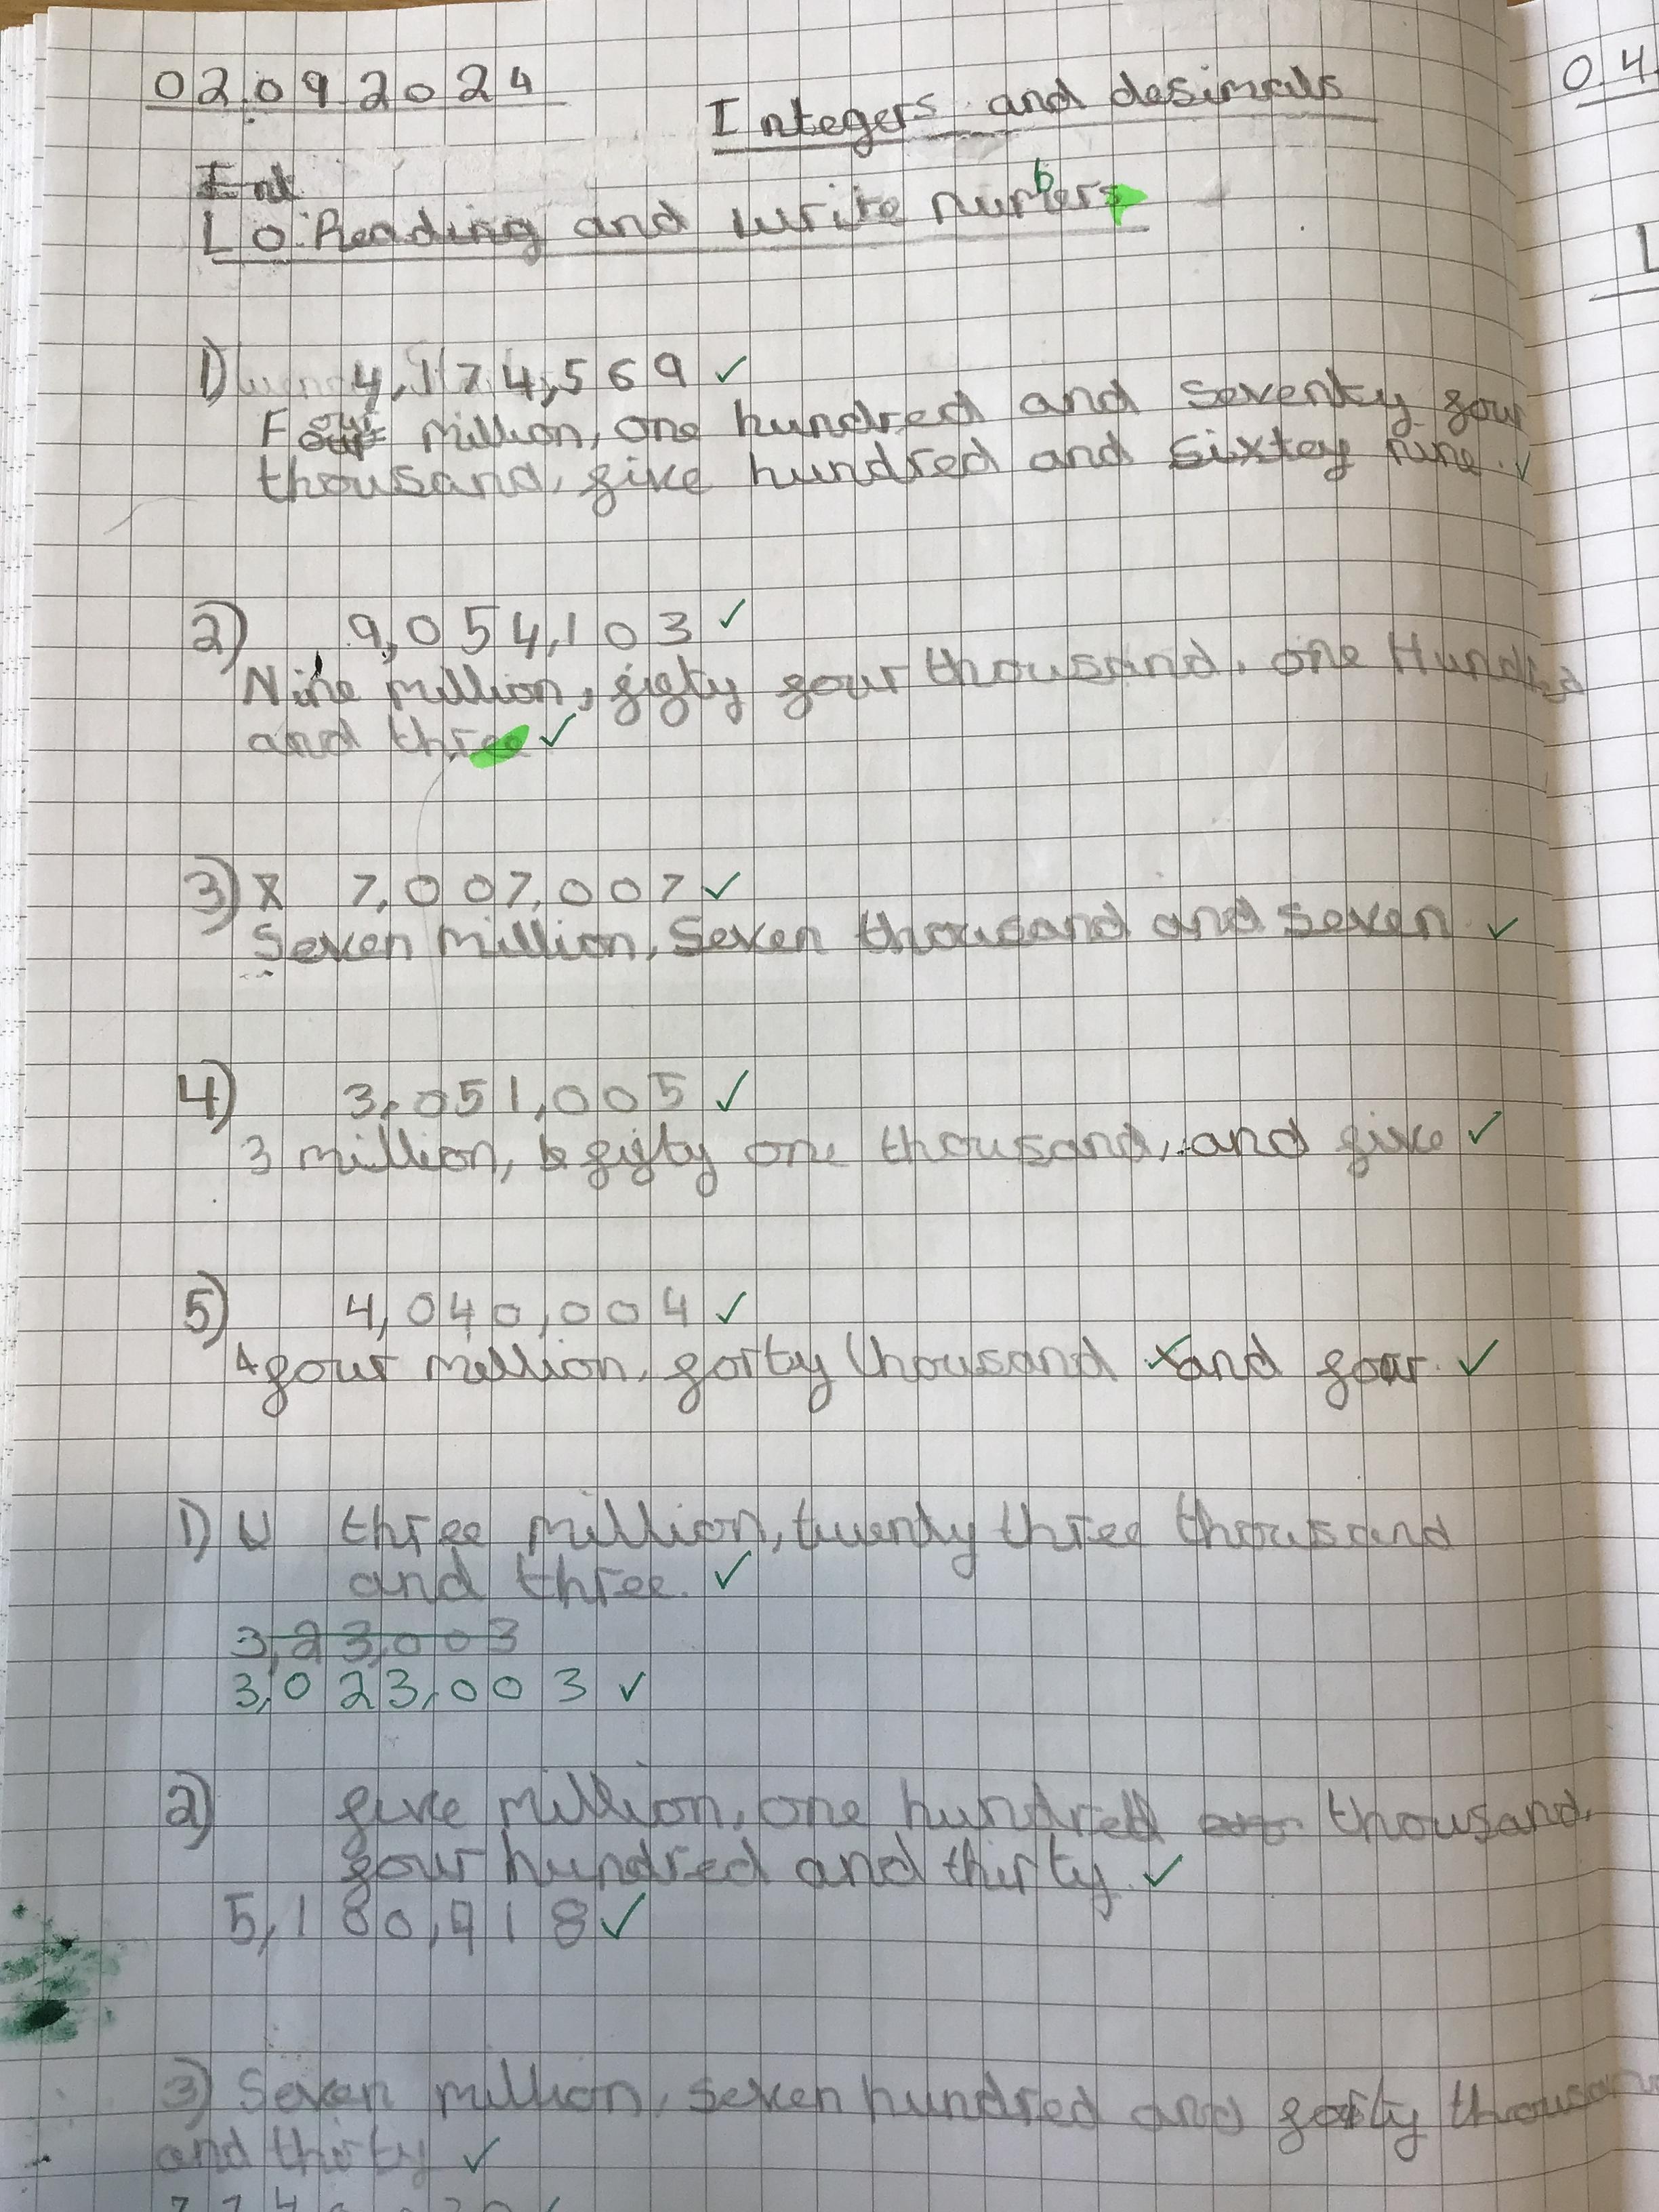 02.09 2024
Integers and desimals
Int
LO: Reading and write numbers
1) 4,174,569 ✓
Four million, one hundred and seventy four
thousand, five hundred and sixtey nine. ✓
2) 9,054,103 ✓
Nine million, fifty four thousand, one Hundred
and three ✓
3) 7,007,007 ✓
Seven million, Seven thousand and seven ✓
4) 3,051,005 ✓
3 million, fifty one thousand, and five ✓
5) 4,040,004 ✓
four million, forty thousand and four. ✓
1) three million, twenty three thousand
and three. ✓
3,23,003
3,023,003 ✓
2) five million, one hundred thousand,
four hundred and thirty. ✓
5,180,918 ✓
3) Seven million, seven hundred and forty thousand
and thirty ✓
04.
L